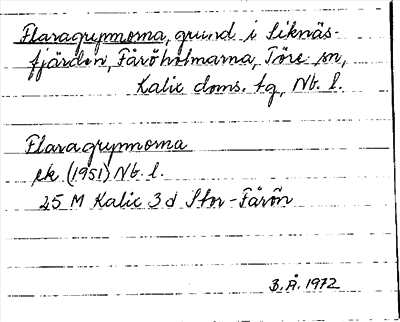 Flaragrynnorna, grund i Siknäs-
fjärden, Fåröholmarna, Töre sn,
Kalix doms. tg, Nb. l.
Flaragrynnorna
ek. (1951) Nb. l.
25 M Kalix 3 d Stor-Fårön
B.Å. 1972